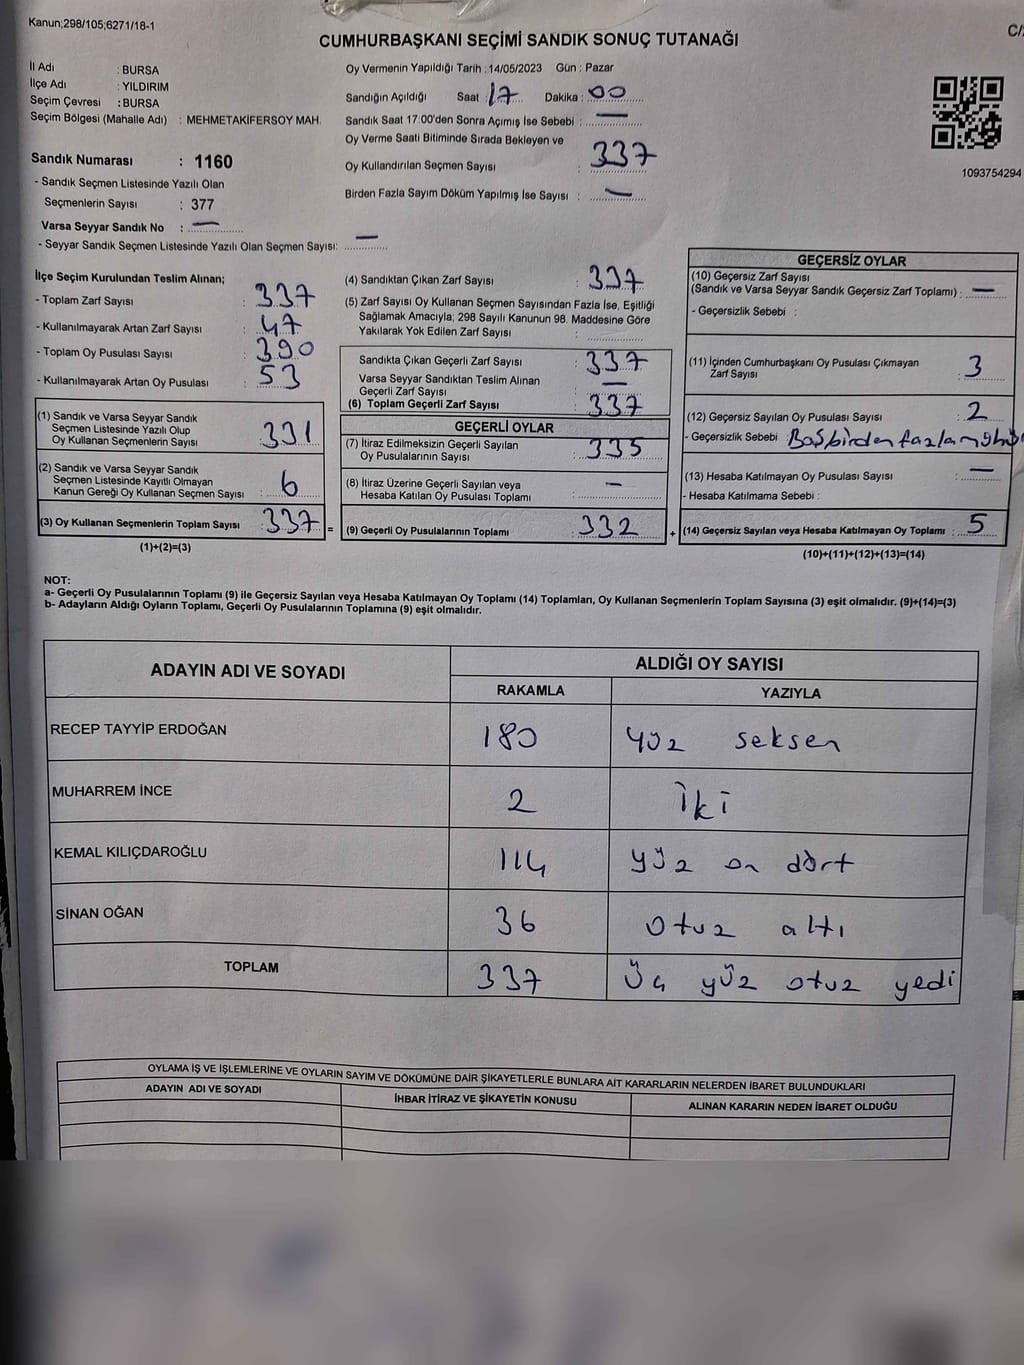 Kanun;298/105;6271/18-1
CUMHURBAŞKANI SEÇİMİ SANDIK SONUÇ TUTANAĞI
İl Adı : BURSA
İlçe Adı : YILDIRIM
Seçim Çevresi : BURSA
Seçim Bölgesi (Mahalle Adı) : MEHMETAKİFERSOY MAH.
Oy Vermenin Yapıldığı Tarih : 14/05/2023 Gün : Pazar
Sandığın Açıldığı Saat : 17 Dakika : 00
Sandık Saat 17:00'den Sonra Açımış İse Sebebi : —
Oy Verme Saati Bitiminde Sırada Bekleyen ve
Oy Kullandırılan Seçmen Sayısı : 337
Birden Fazla Sayım Döküm Yapılmış İse Sayısı : —
1093754294
Sandık Numarası : 1160
- Sandık Seçmen Listesinde Yazılı Olan
Seçmenlerin Sayısı : 377
Varsa Seyyar Sandık No : —
- Seyyar Sandık Seçmen Listesinde Yazılı Olan Seçmen Sayısı: —
İlçe Seçim Kurulundan Teslim Alınan;
- Toplam Zarf Sayısı : 337
- Kullanılmayarak Artan Zarf Sayısı : 47
- Toplam Oy Pusulası Sayısı : 390
- Kullanılmayarak Artan Oy Pusulası : 53
(1) Sandık ve Varsa Seyyar Sandık
Seçmen Listesinde Yazılı Olup
Oy Kullanan Seçmenlerin Sayısı : 331
(2) Sandık ve Varsa Seyyar Sandık
Seçmen Listesinde Kayıtlı Olmayan
Kanun Gereği Oy Kullanan Seçmen Sayısı : 6
(3) Oy Kullanan Seçmenlerin Toplam Sayısı : 337 =
(1)+(2)=(3)
(4) Sandıktan Çıkan Zarf Sayısı : 337
(5) Zarf Sayısı Oy Kullanan Seçmen Sayısından Fazla İse, Eşitliği
Sağlamak Amacıyla; 298 Sayılı Kanunun 98. Maddesine Göre
Yakılarak Yok Edilen Zarf Sayısı :
Sandıkta Çıkan Geçerli Zarf Sayısı : 337
Varsa Seyyar Sandıktan Teslim Alınan
Geçerli Zarf Sayısı : —
(6) Toplam Geçerli Zarf Sayısı : 337
GEÇERLİ OYLAR
(7) İtiraz Edilmeksizin Geçerli Sayılan
Oy Pusulalarının Sayısı : 335
(8) İtiraz Üzerine Geçerli Sayılan veya
Hesaba Katılan Oy Pusulası Toplamı : —
(9) Geçerli Oy Pusulalarının Toplamı : 332 +
GEÇERSİZ OYLAR
(10) Geçersiz Zarf Sayısı
(Sandık ve Varsa Seyyar Sandık Geçersiz Zarf Toplamı) : —
- Geçersizlik Sebebi :
(11) İçinden Cumhurbaşkanı Oy Pusulası Çıkmayan
Zarf Sayısı : 3
(12) Geçersiz Sayılan Oy Pusulası Sayısı : 2
- Geçersizlik Sebebi : Baş birden fazla mühür
(13) Hesaba Katılmayan Oy Pusulası Sayısı : —
- Hesaba Katılmama Sebebi :
(14) Geçersiz Sayılan veya Hesaba Katılmayan Oy Toplamı : 5
(10)+(11)+(12)+(13)=(14)
NOT:
a- Geçerli Oy Pusulalarının Toplamı (9) ile Geçersiz Sayılan veya Hesaba Katılmayan Oy Toplamı (14) Toplamları, Oy Kullanan Seçmenlerin Toplam Sayısına (3) eşit olmalıdır. (9)+(14)=(3)
b- Adayların Aldığı Oyların Toplamı, Geçerli Oy Pusulalarının Toplamına (9) eşit olmalıdır.
ADAYIN ADI VE SOYADI ALDIĞI OY SAYISI
RAKAMLA YAZIYLA
RECEP TAYYİP ERDOĞAN 180 Yüz seksen
MUHARREM İNCE 2 İki
KEMAL KILIÇDAROĞLU 114 yüz on dört
SİNAN OĞAN 36 otuz altı
TOPLAM 337 Üç yüz otuz yedi
OYLAMA İŞ VE İŞLEMLERİNE VE OYLARIN SAYIM VE DÖKÜMÜNE DAİR ŞİKAYETLERLE BUNLARA AİT KARARLARIN NELERDEN İBARET BULUNDUKLARI
ADAYIN ADI VE SOYADI İHBAR İTİRAZ VE ŞİKAYETİN KONUSU ALINAN KARARIN NEDEN İBARET OLDUĞU